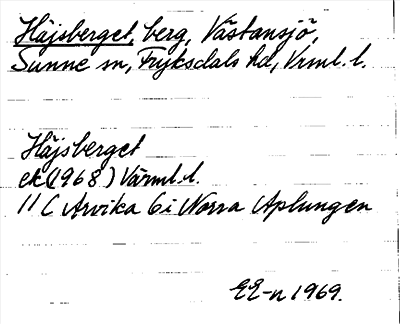 Häjsberget, berg, Västansjö,
Sunne sn, Fryksdals hd, Vrml. l.
Häjsberget
ek (1968) Värml. l.
11 C Arvika 6 i Norra Aplungen
EE-n 1969.